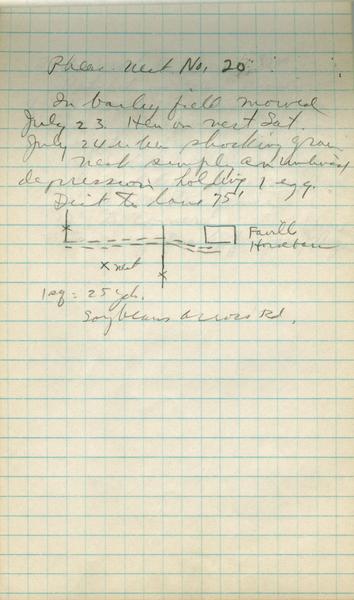 Pheas. Nest No. 20
In barley field mowed
July 23. Hen on nest Sat
July 24 when shocking grain
Nest simple
depression holding 1 egg.
Dist to lane 75'
Faville
Horsebarn
x nest
1 sq = 25 yds.
Soybeans across Rd.